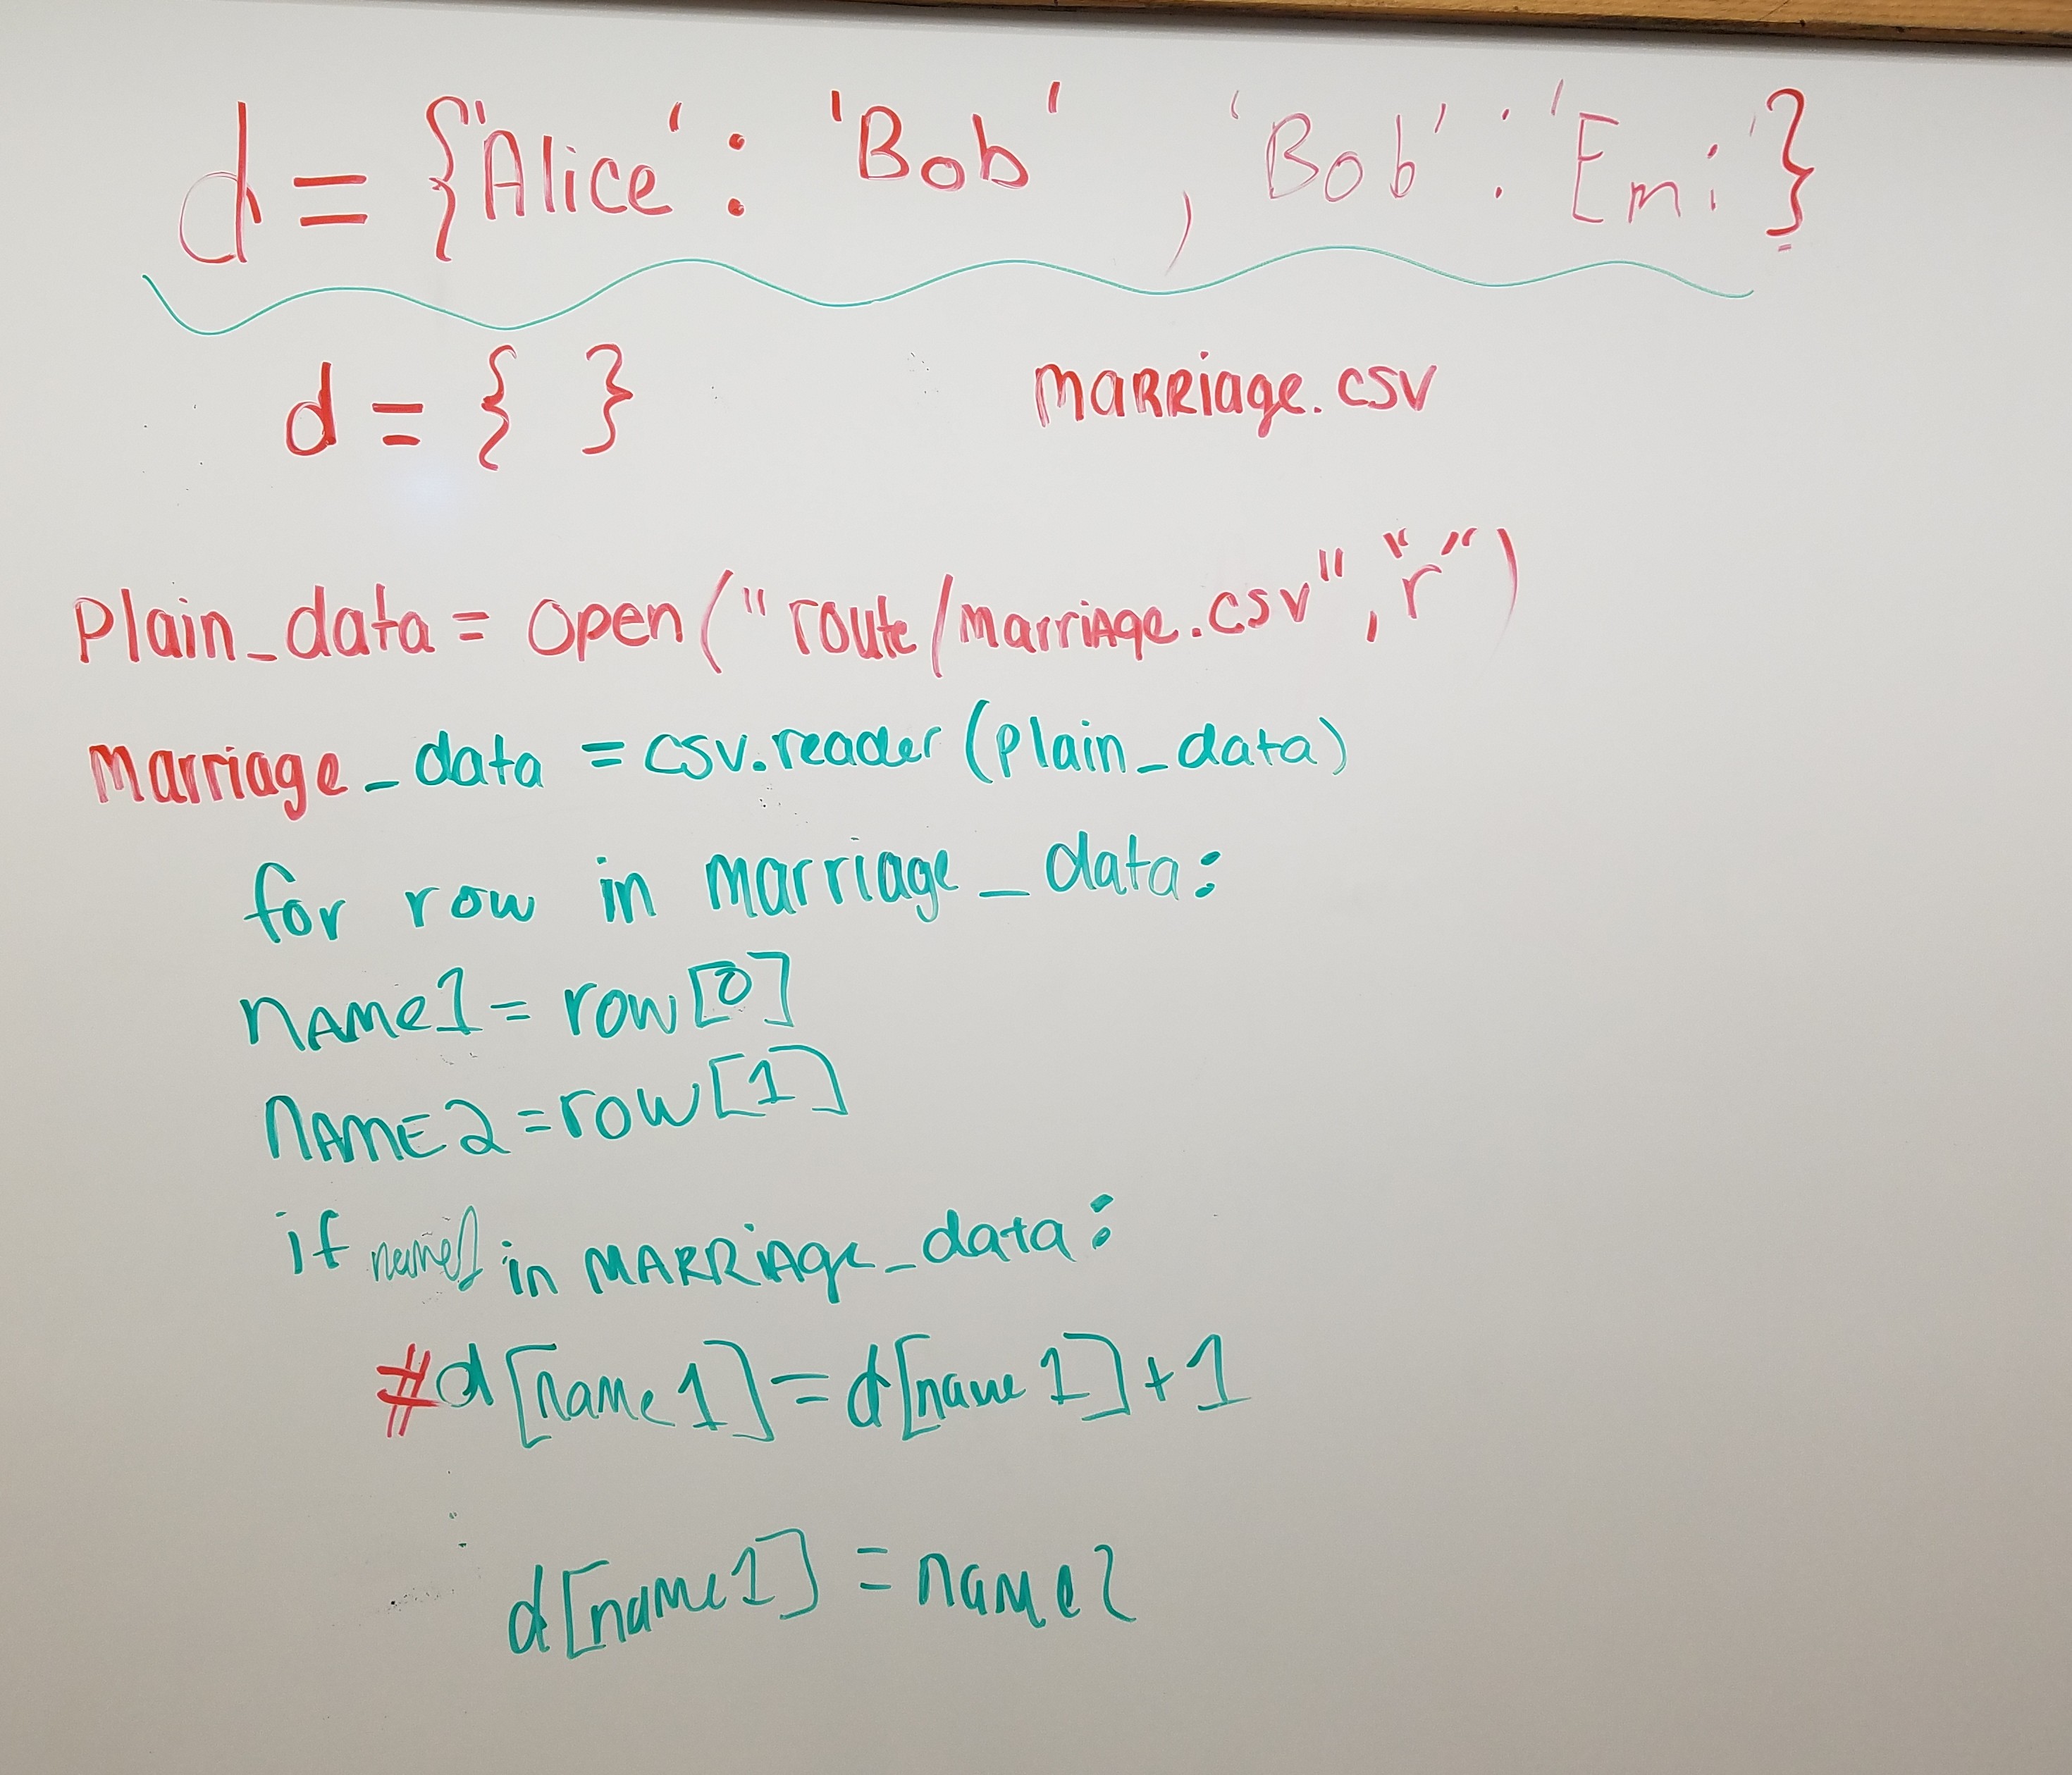 d = {"Alice' : 'Bob' , 'Bob' : 'Emi'}
d = { } marriage.csv
Plain_data = open("route/marriage.csv", "r")
Marriage_data = csv.reader(plain_data)
for row in marriage_data:
name1 = row[0]
name2 = row[1]
if name1 in marriage_data:
#d[name1] = d[name1]+1
d[name1] = name2